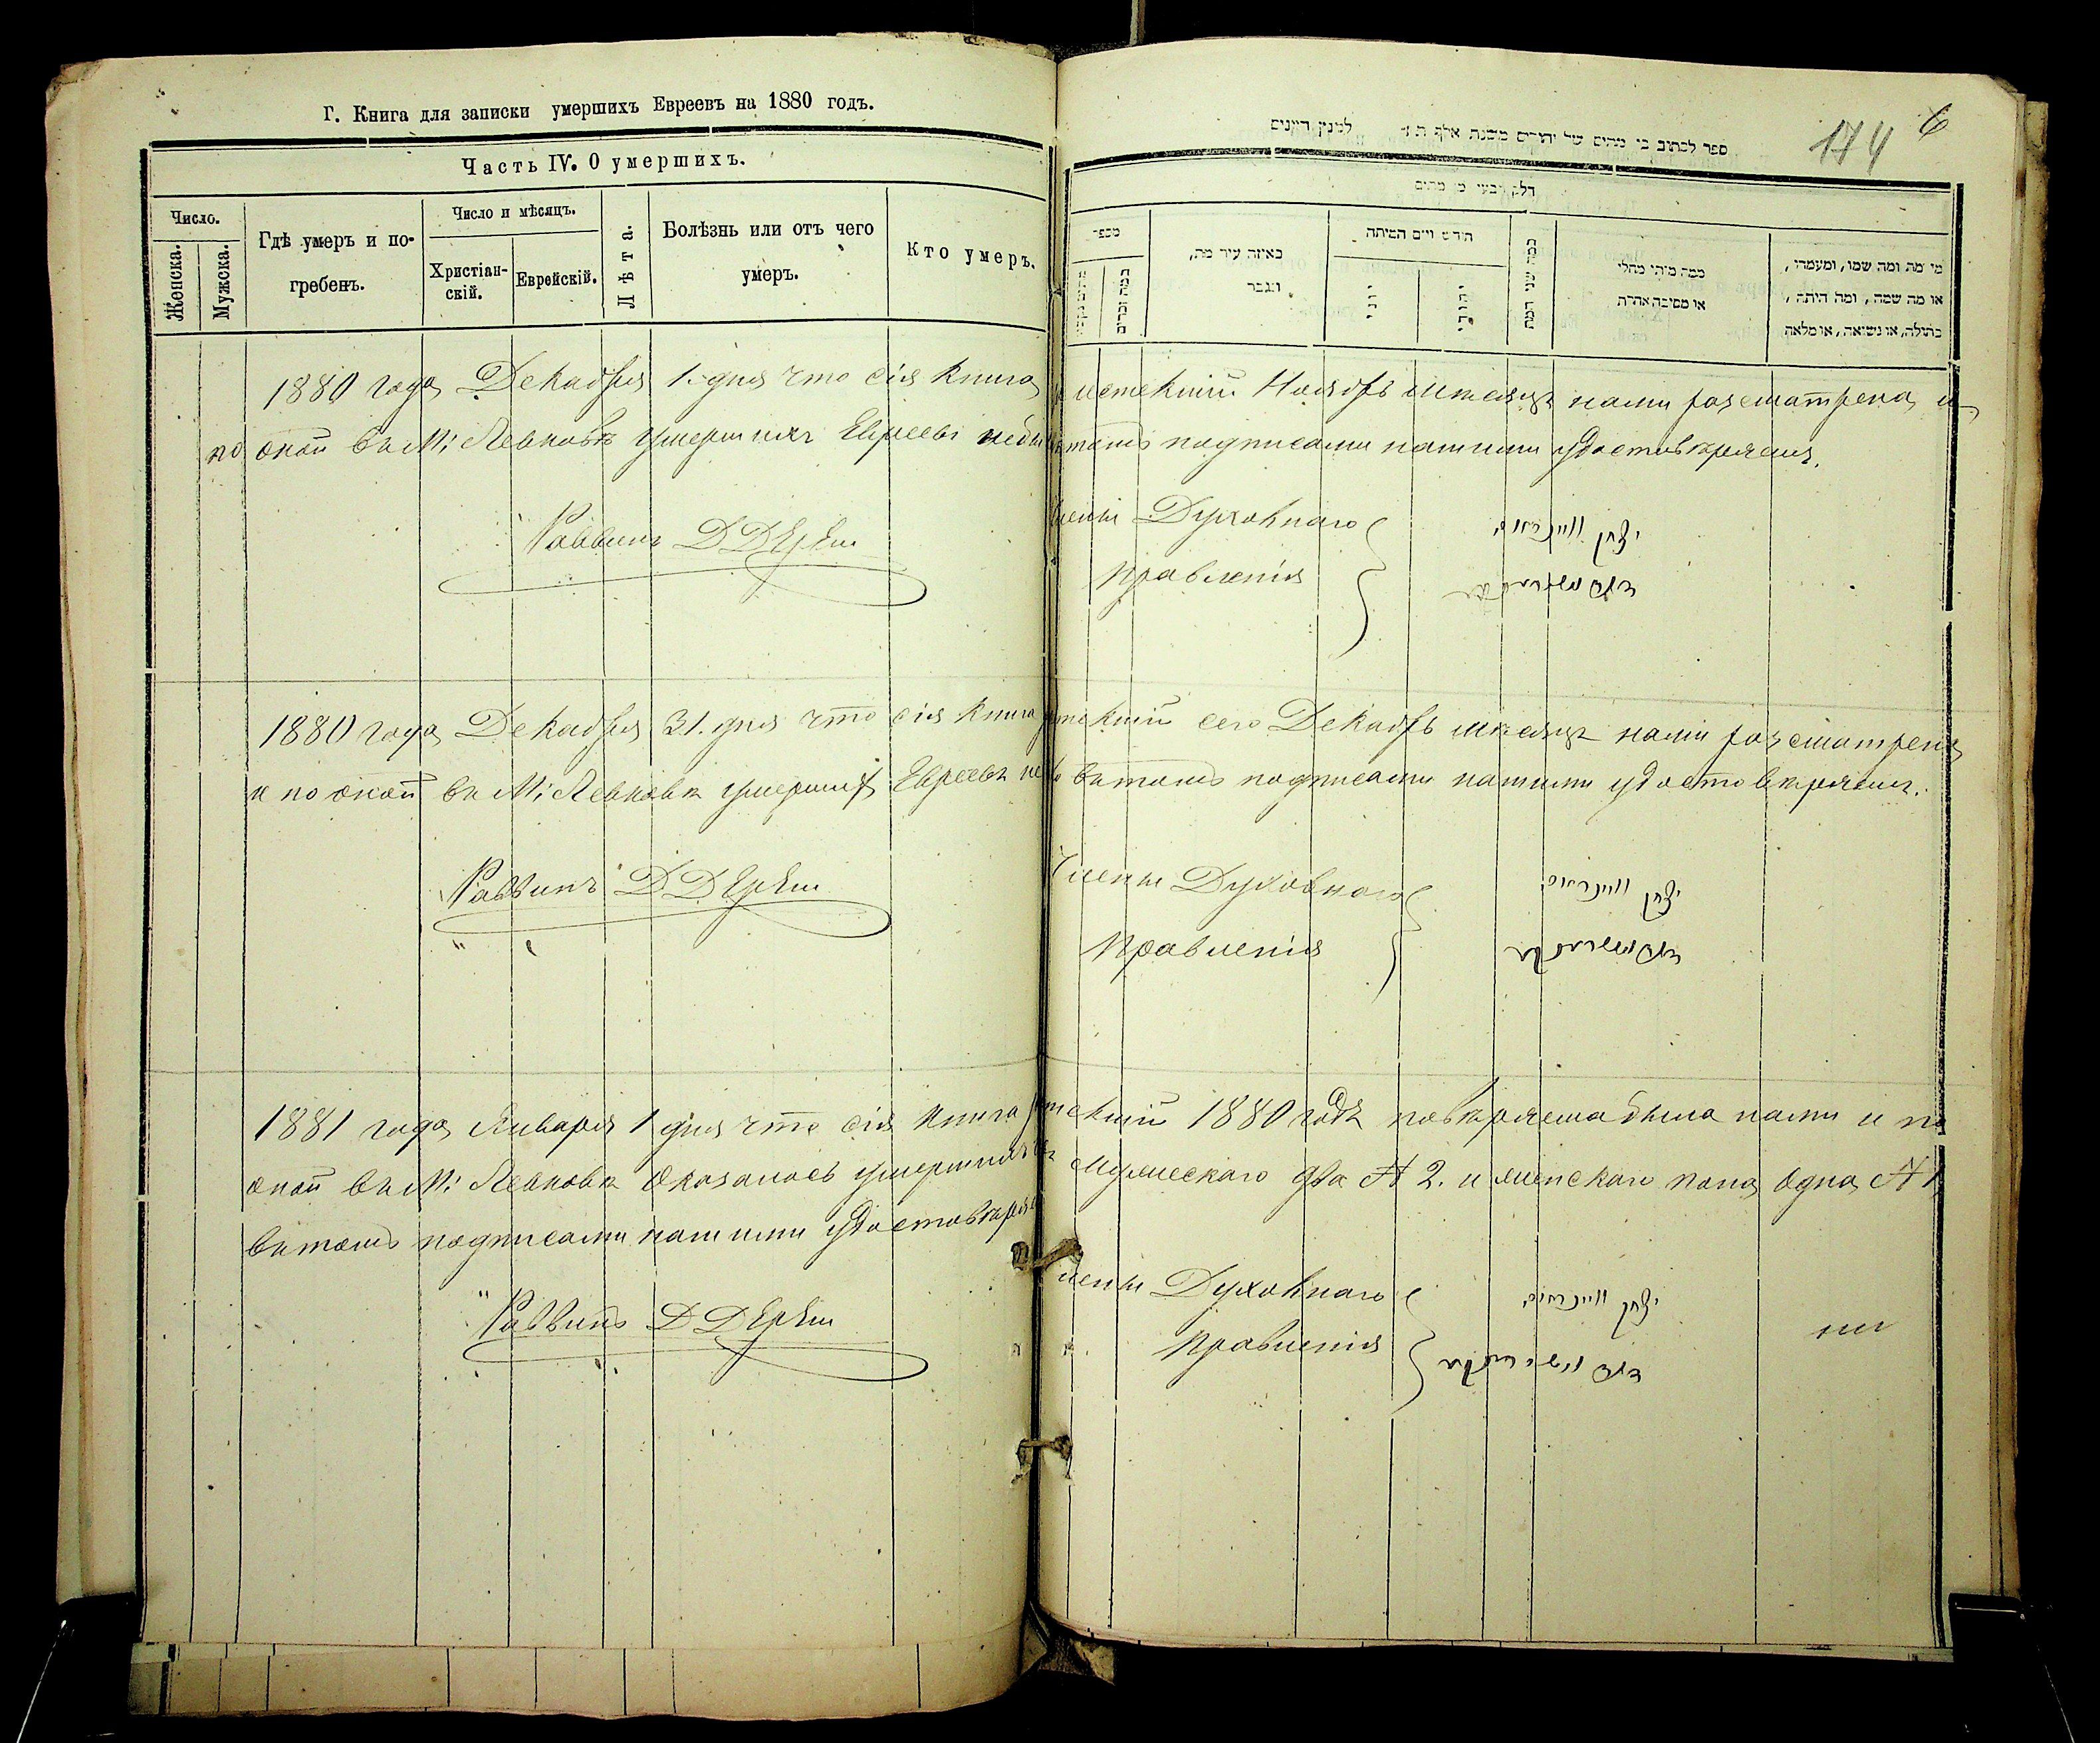 Г. Книга для записки умершихъ Евреевъ на 1880 годъ.
Часть IV. О умершихъ.
Число.
Женска.
Мужска.
Гдѣ умеръ и по-
гребенъ.
Число и мѣсяцъ.
Христіан-
скій.
Еврейскій.
Лѣта.
Болѣзнь или отъ чего
умеръ.
Кто умеръ.
174
6
ספר לכתוב בו מתים של יהודים משנת אלף ת ו- למנין היונים
חלק רביעי מן מתים
מספר
כמה זכרים
באיזה עיר מת,
ונגבר
חודש ויום המיתה
יוני
יהודי
כמה שני המת
כמה מיתי מחלי
או מסיבה אחרת
מי מת ומה שמו, ומעמדו,
או מה שמה, ומה היתה,
בתולה, או נשואה, או מלאה
1880 года Декабря 1 дня что сія книга за истекшій Ноябрь мѣсяцъ нами разсматрена и
по оной въ М; Левковѣ умершихъ Евреевъ небыло въ томъ подписами нашими удостовѣряемъ.
Раввинъ Д
Члены Духовнаго
Правленія
1880 года Декабря 31. дня что сія книга за истекшій сего Декабрь мѣсяцъ нами разсматрена
и по оной въ М; Левковѣ умершихъ Евреевъ небыло въ томъ подписами нашими удостовѣряемъ.
Раввинъ Д
Члены Духовнаго
Правленія
1881 года Января 1 дня что сія книга за истекшій 1880 годъ повѣряема была нами и по
оной въ М; Левковѣ оказалось умершихъ Мужескаго два № 2. и женскаго пола одна № 1
въ томъ подписами нашими удостовѣряемъ
Раввинъ Д
Члены Духовнаго
Правленія